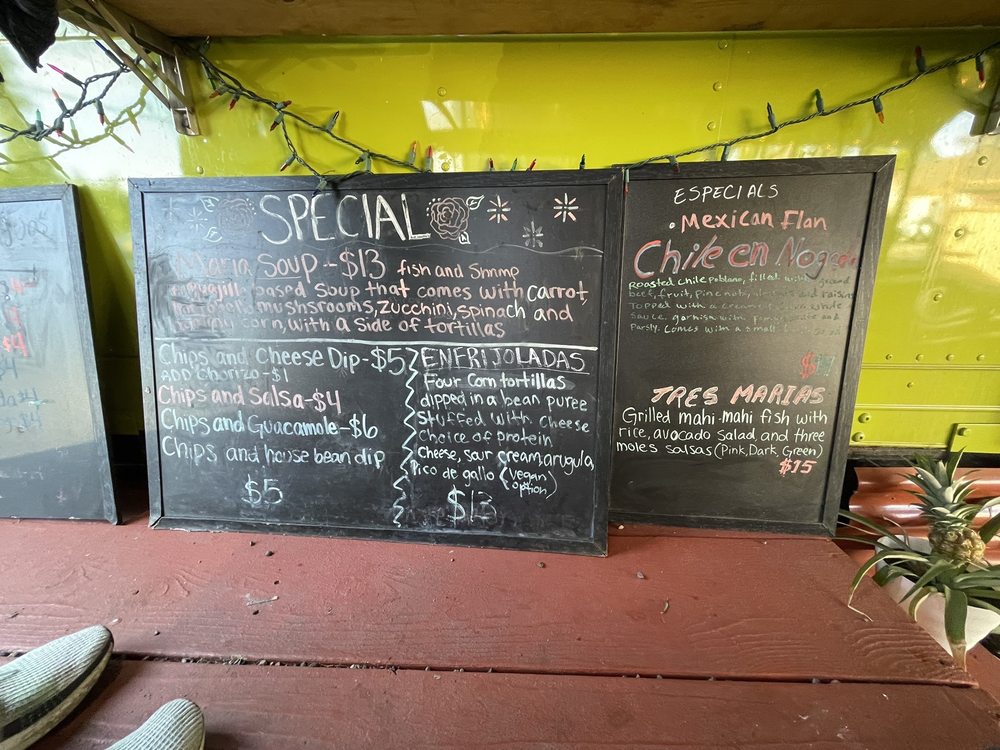 $4
SPECIAL
Maria Soup - $13 fish and Shrimp
based Soup that comes with carrot,
mushsrooms, zucchini, spinach and
corn, with a side of tortillas
Chips and Cheese Dip - $5
ADD Chorizo - $1
Chips and Salsa - $4
Chips and Guacamole - $6
Chips and house bean dip
$5
ENFRIJOLADAS
Four Corn tortillas
dipped in a bean puree
Stuffed with cheese
Choice of protein
Cheese, sour cream, arugula,
Pico de gallo (vegan
option)
$13
ESPECIALS
. Mexican Flan
Chile en
Roasted Chile Poblano, filled with ground
beef, fruit, Pine nuts, and raisins
Topped with a creamy white
sauce. garnish with and
Parsly. Comes with a small
TRES MARIAS
Grilled mahi-mahi fish with
rice, avocado salad and three
moles salsas (Pink, Dark, Green)
$15